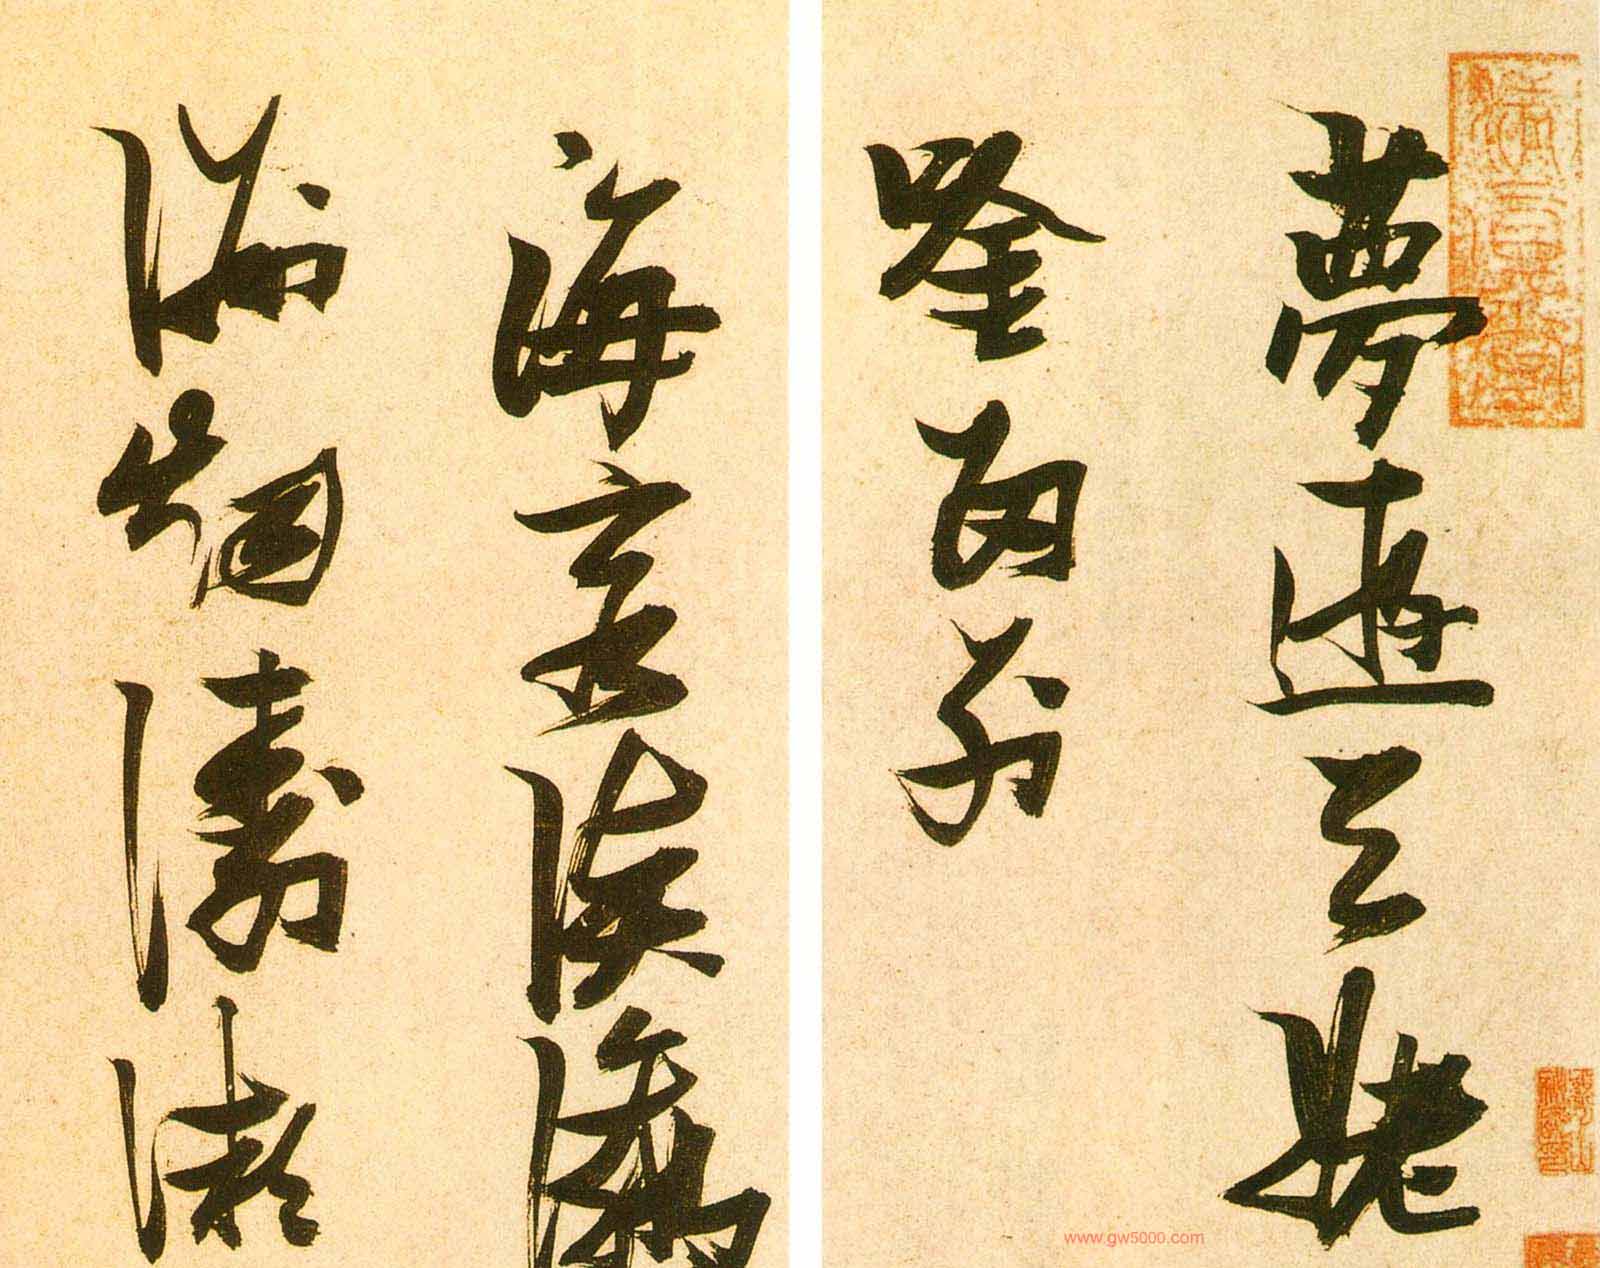 夢遊天姥
唫留別
海客談瀛
洲烟濤微
www.gw5000.com